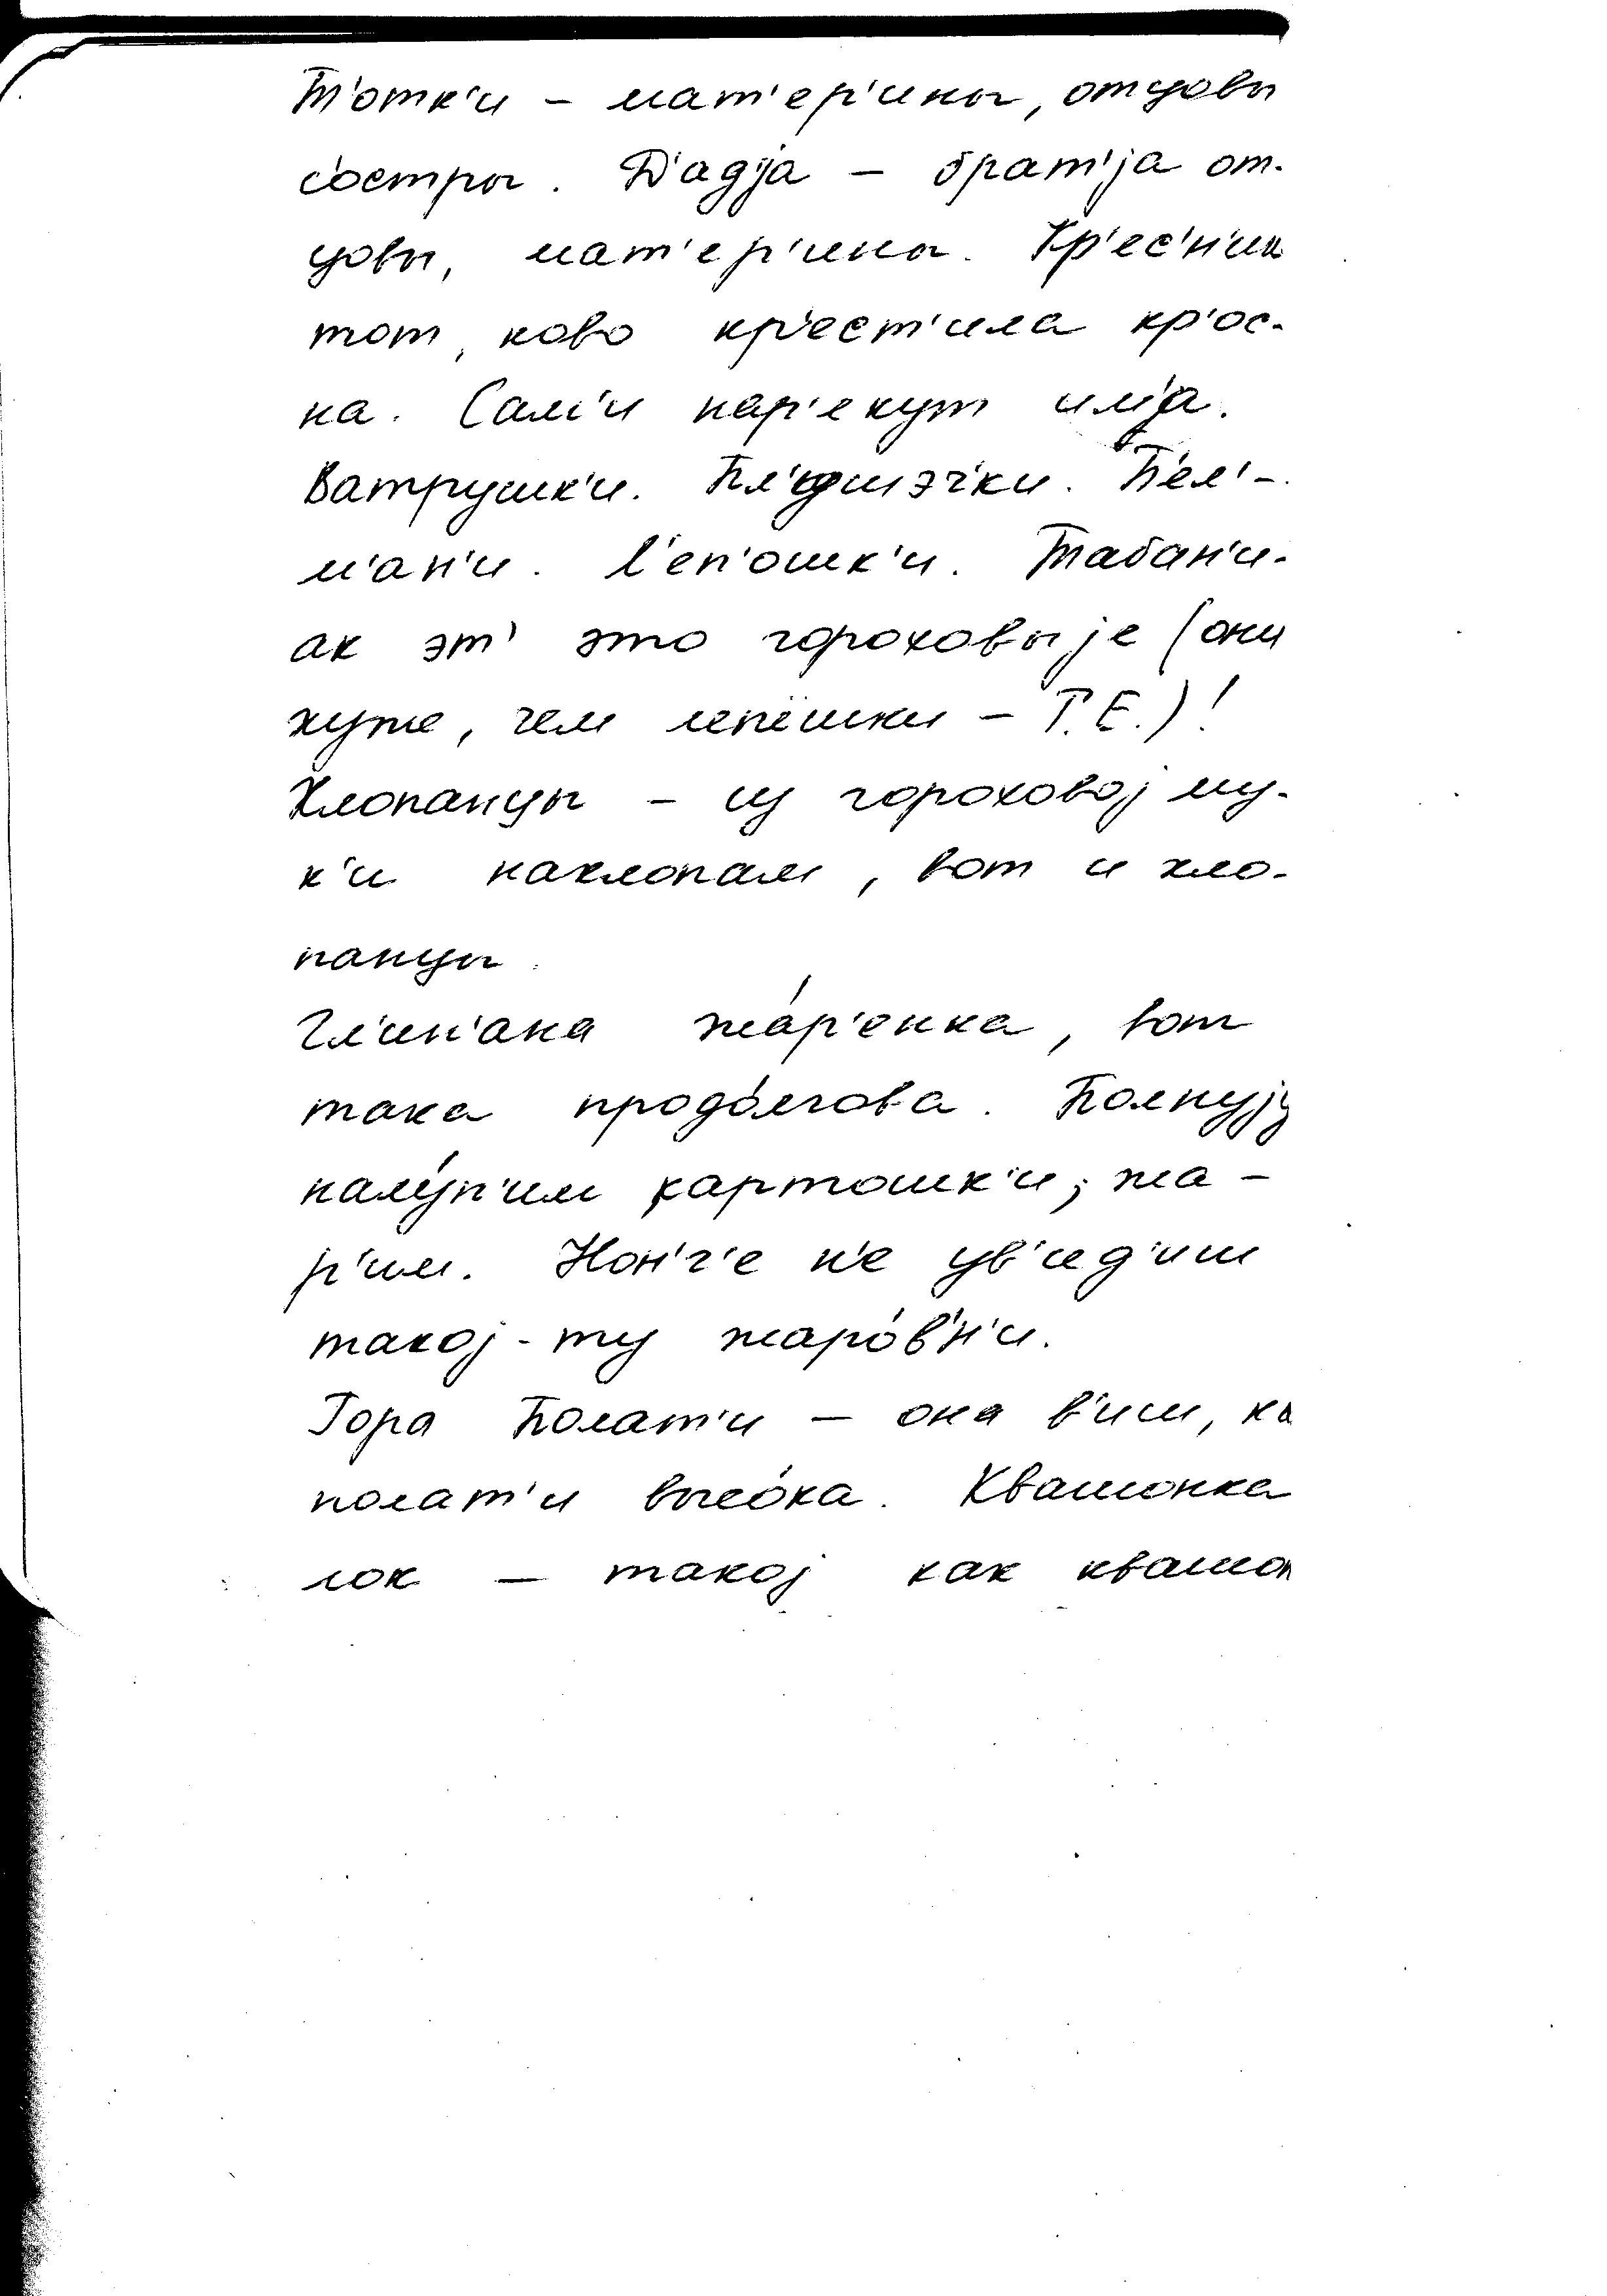 Т'отк'и – мат'ер'ины, отцовы
с'остры. Д'адја – брат'ја от-
цовы, мат'ер'ины. Кр'ес'н'ик
тот, ково кр'ест'ила кр'ос-
на. Сам'и нар'екут им'а.
Ватрушк'и. Пл'ушэчки. П'ел'-
м'ан'и. Л'еп'ошк'и. Табан'и-
ак эт' это гороховыје (они
хуже, чем лепёшки – Т.Е.)!
Хлопанцы – су гороховој му-
к'и нахлопам, вот и хло-
панцы.
Гл'ин'ана жа́р'енка, вот
така продо́лгова. Полнују
налу́п'им картошк'и, жа-
р'им. Нон'г'е н'е ув'ид'иш
такој-ту жаро́в'н'и.
Гора Полат'и – она в'иш, ка
полат'и высо́ка. Квашонка
лок – такој как квашон